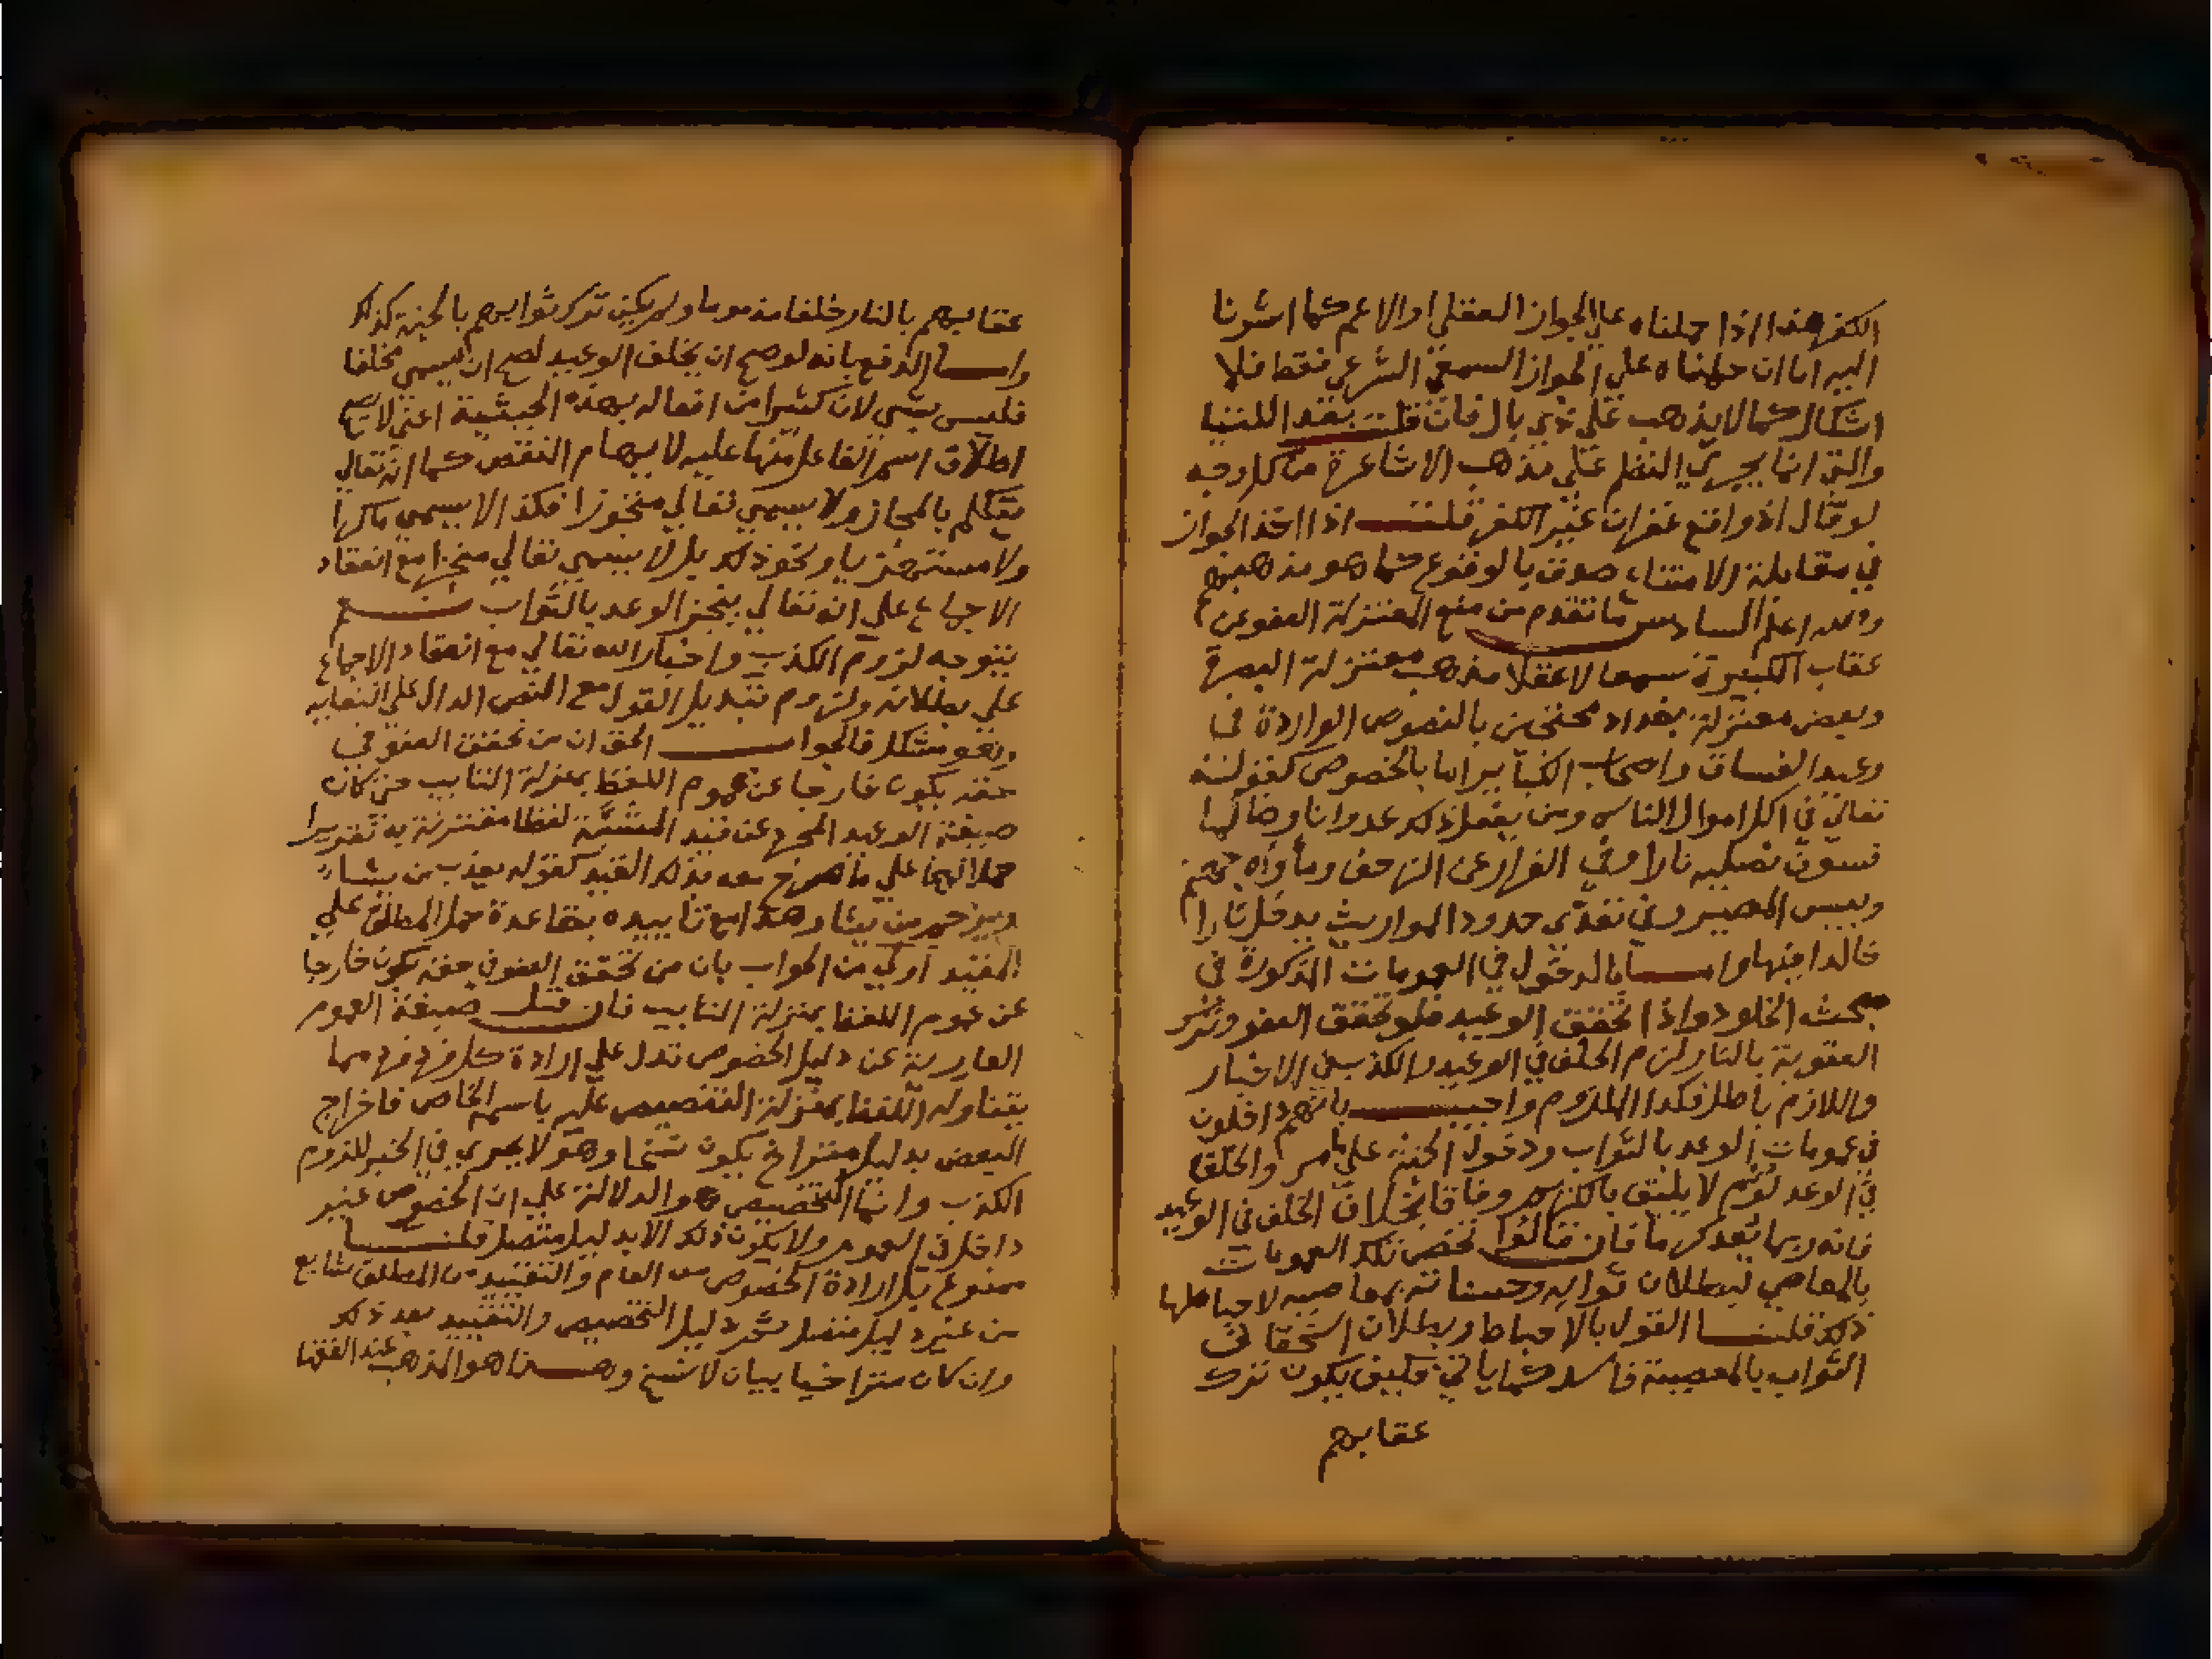 الكفر هذا اذا حملناه علي الجواز العقلي او الاعم كما اشرنا
اليه اما ان حملناه علي الجواز السمعي الشرعي فقط فلا
اشكال كما لا يذهب علي ذي بال فان قلت بعد اللتيا
والتي انما يجري النظم علي مذهب الاشاعرة من كل وجه
لو قال اذ واقع غفران غير الكفر قلت اذا اخذ الجواز
في مقابلة الامتناع صدق بالوقوع كما هو مذهبهم
والله اعلم السادس ما تقدم من منع المعتزلة العفو عن
عقاب الكبيرة سمعا لا عقلا مذهب معتزلة البصرة
وبعض معتزلة بغداد محتجين بالنصوص الواردة في
وعيد الفساق واصحاب الكبائر اما بالخصوص كقوله
تعالي في اكل اموال الناس ومن يفعل ذلك عدوانا وظلما
فسوف نصليه نارا وفي الفرار عن الزحف ومأواه جهنم
وبيس المصير وفي تعدي حدود المواريث يدخل نارا
خالدا فيها واما بالدخول في العمومات المذكورة في
بحث الخلود واذا تحقق الوعيد فلو تحقق العفو وترك
العقوبة بالنار لزم الخلف في الوعيد والكذب في الاخبار
واللازم باطل فكذا الملزوم واجيب بانهم داخلون
في عمومات الوعد بالثواب ودخول الجنة علي ما مر والخلف
في الوعد لؤم لا يليق بالكريم وفاقا بخلاف الخلف في الوعيد
فانه ربما يعد كرما فان قالوا تخص تلك العمومات
بالمعاصي لبطلان ثوابه وحسناته بمعاصيه لاحباطها
ذلك قلنا القول بالاحباط وبطلان استحقاق
الثواب بالمعصية فاسد كما ياتي فكيف يكون ترك
عقابهم
عقابهم بالنار خلفا مذموما ولم يكن ترك ثوابهم بالجنة كذلك
واما الدفع بانه لو صح ان يخلف الوعيد لصح ان يسمي مخلفا
فليس بشي لان كثيرا من افعاله بهذه الحيثية اعني لا يصح
اطلاق اسم الفاعل منها عليه لايهام النقص كما انه تعالي
يتكلم بالمجاز ولا يسمي تعالي متجوزا فكذا لا يسمي ماكرا
ولا مستهزئيا ونحو ذلك بل لا يسمي تعالي منجزا مع انعقاد
الاجماع علي انه تعالي ينجز الوعد بالثواب نعم
يتوجه لزوم الكذب في اخبار الله تعالي مع انعقاد الاجماع
علي بطلانه ولزوم تبديل القول مع النص الدال علي انتفايه
وهو مشكل فالجواب الحق ان من تحقق العفو في
حقه يكون خارجا عن عموم اللفظ بمنزلة التايب حتي كان
صيغة الوعيد المجرد عن قيد المشيئة لفظا مقترنة به تقديرا
حملا لها علي ما صرح معه بذلك القيد كقوله يعذب من يشاء
ويرحم من يشاء وهذا مع تاييده بقاعدة حمل المطلق علي
المقيد اولي من الجواب بان من تحقق العفو في حقه يكون خارجا
عن عموم اللفظ بمنزلة التايب فان قيل صيغة العموم
العارية عن دليل الخصوص تدل علي ارادة كل فرد فرد مما
يتناوله اللفظ بمنزلة التنصيص عليه باسمه الخاص فاخراج
البعض بدليل متراخ يكون نسخا وهو لا يجري في الخبر للزوم
الكذب وانما التخصيص هو الدلالة علي ان الخصوص غير
داخل في العموم ولا يكون ذلك الا بدليل متصل قلنا
ممنوع بل ارادة الخصوص من العام والتقييد من المطلق شايع
من غير دليل متصل ثم دليل التخصيص والتقييد بعد ذلك
وان كان متراخيا بيان لا نسخ وهذا هو المذهب عند الفقها